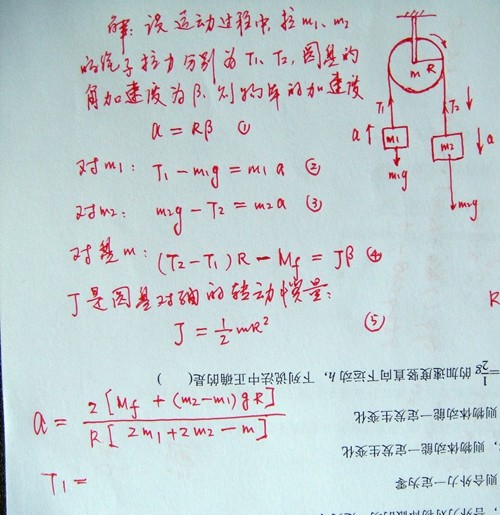 解: 设运动过程中, 拉m₁、m₂
的绳子拉力分别为T₁、T₂, 圆盘的
角加速度为β. 则物体的加速度
a = Rβ ①
对m₁: T₁ - m₁g = m₁a ②
对m₂: m₂g - T₂ = m₂a ③
对盘m: (T₂-T₁)R - Mf = Jβ ④
J是圆盘对轴的转动惯量:
J = 1/2 mR² ⑤
a = 2[Mf + (m₂-m₁)gR] / R[2m₁+2m₂-m]
T₁ =
m R
T₁ T₂
a m₁ m₂ a
m₁g
m₂g
R
=1/2g 的加速度竖直向下运动 h, 下列说法中正确的是( )
则物体动能一定发生变化
则物体动能一定发生变化
则合外力一定为零